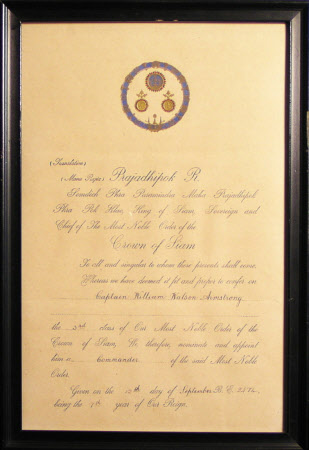 (Translation)
(Manu Regia) Prajadhipok R.
Somdech Phra Paramindra Maha Prajadhipok
Phra Pok Klao, King of Siam, Sovereign and
Chief of The Most Noble Order of the
Crown of Siam
To all and singular to whom these presents shall come,
Whereas we have deemed it fit and proper to confer on
Captain William Watson Armstrong
the 2nd class of Our Most Noble Order of the
Crown of Siam, We therefore nominate and appoint
him a Commander of the said Most Noble
Order.
Given on the day of September B.E. 
being the 7th year of Our Reign.